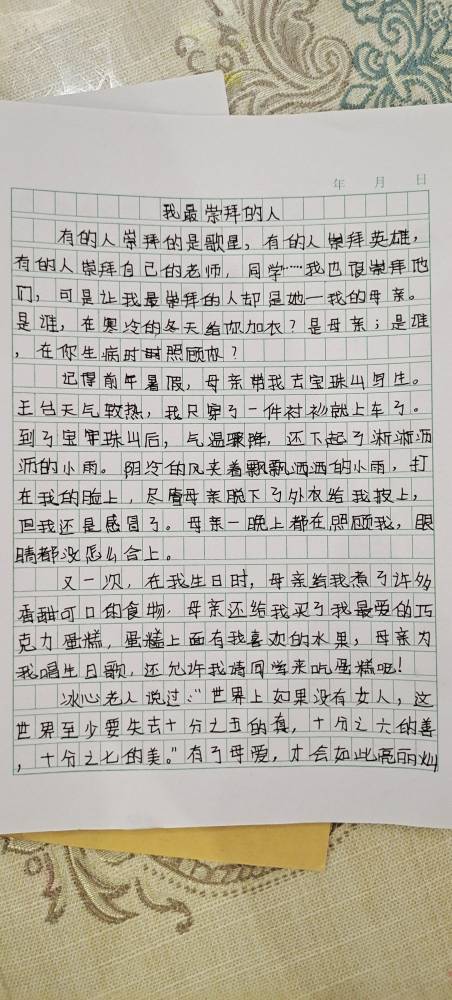 年 月 日
我最崇拜的人
有的人崇拜的是歌星，有的人崇拜英雄，
有的人崇拜自己的老师，同学……我也很崇拜他
们，可是让我最崇拜的人却是她—我的母亲。
是谁，在寒冷的冬天给你加衣？是母亲；是谁
，在你生病时照顾你？
记得前年暑假，母亲带我去宝珠山写生。
王台天气较热，我只穿了一件衬衫就上车了。
到了宝珠山后，气温骤降，还下起了淅淅沥
沥的小雨。阴冷的风夹着飘飘洒洒的小雨，打
在我的脸上，尽管母亲脱下了外衣给我披上，
但我还是感冒了。母亲一晚上都在照顾我，眼
睛都没怎么合上。
又一次，在我生日时，母亲给我煮了许多
香甜可口的食物，母亲还给我买了我最爱的巧
克力蛋糕，蛋糕上面有我喜欢的水果，母亲为
我唱生日歌，还允许我请同学来吃蛋糕呢！
冰心老人说过：“世界上如果没有女人，这
世界至少要失去十分之五的真，十分之六的善
，十分之七的美。”有了母爱，才会如此亮丽灿